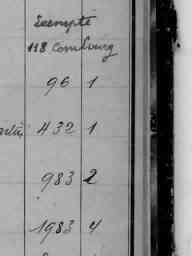 Exempté
118 Combourg
96 1
432 1
983 2
1983 4